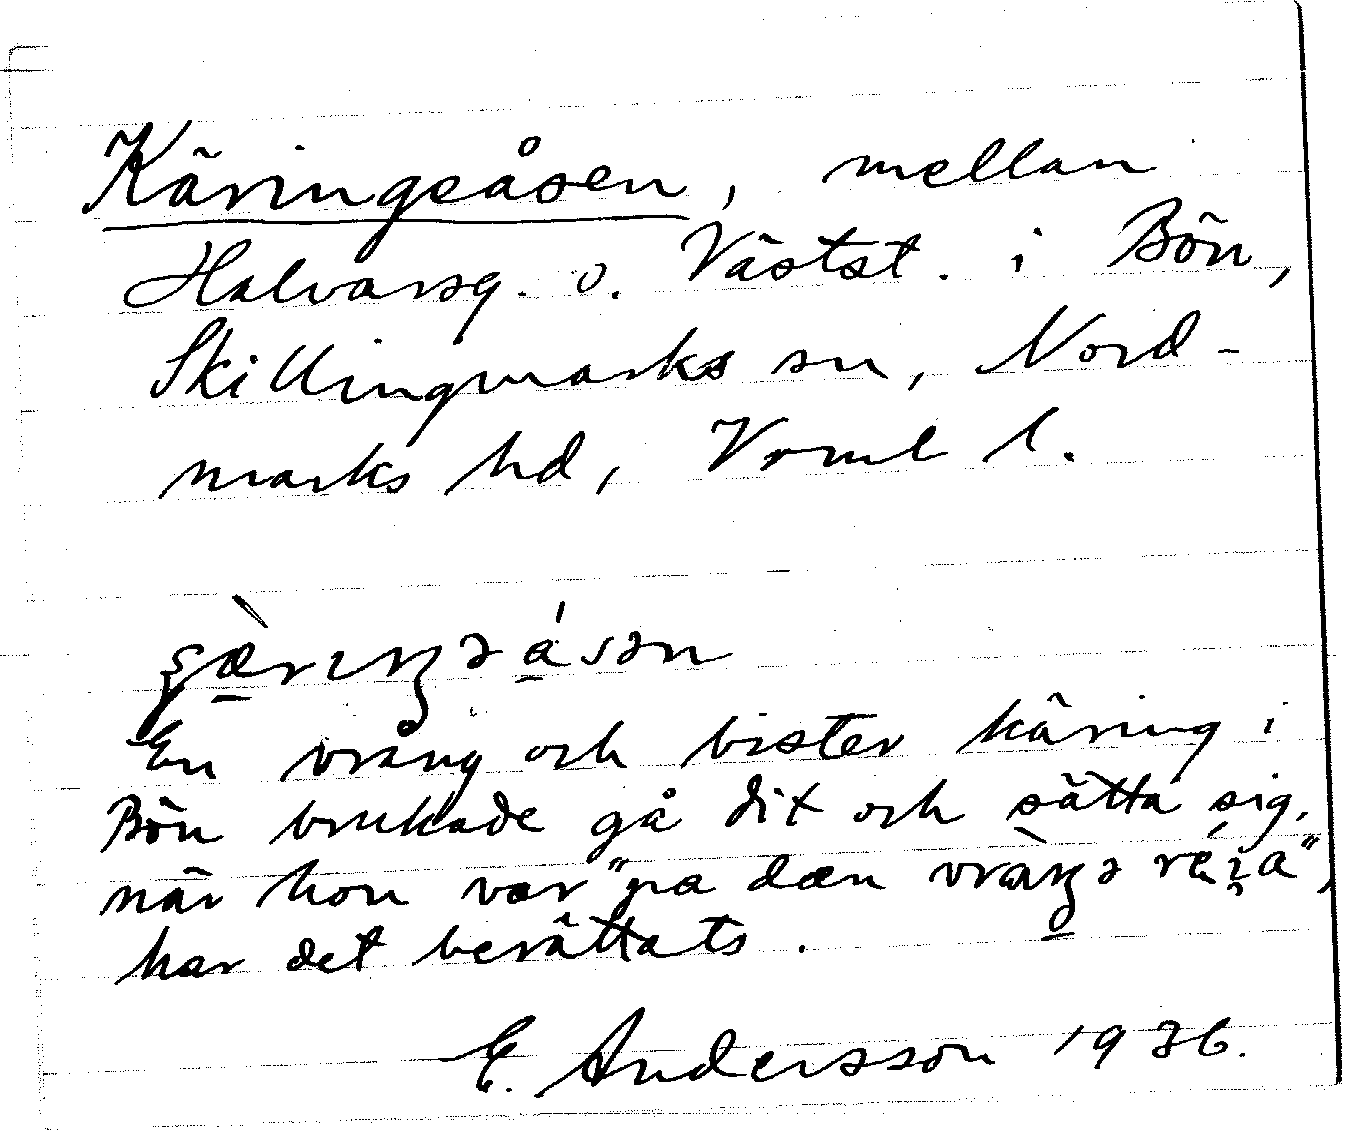 Käringeåsen, mellan
Halvarsg. o. Västst. i Bön,
Skillingmarks sn, Nord-
marks hd, Vrml l.
En vrång och bister käring i
Bön brukade gå dit och sätta sig,
när hon var "pa dæn
har det berättats.
E. Andersson 1936.